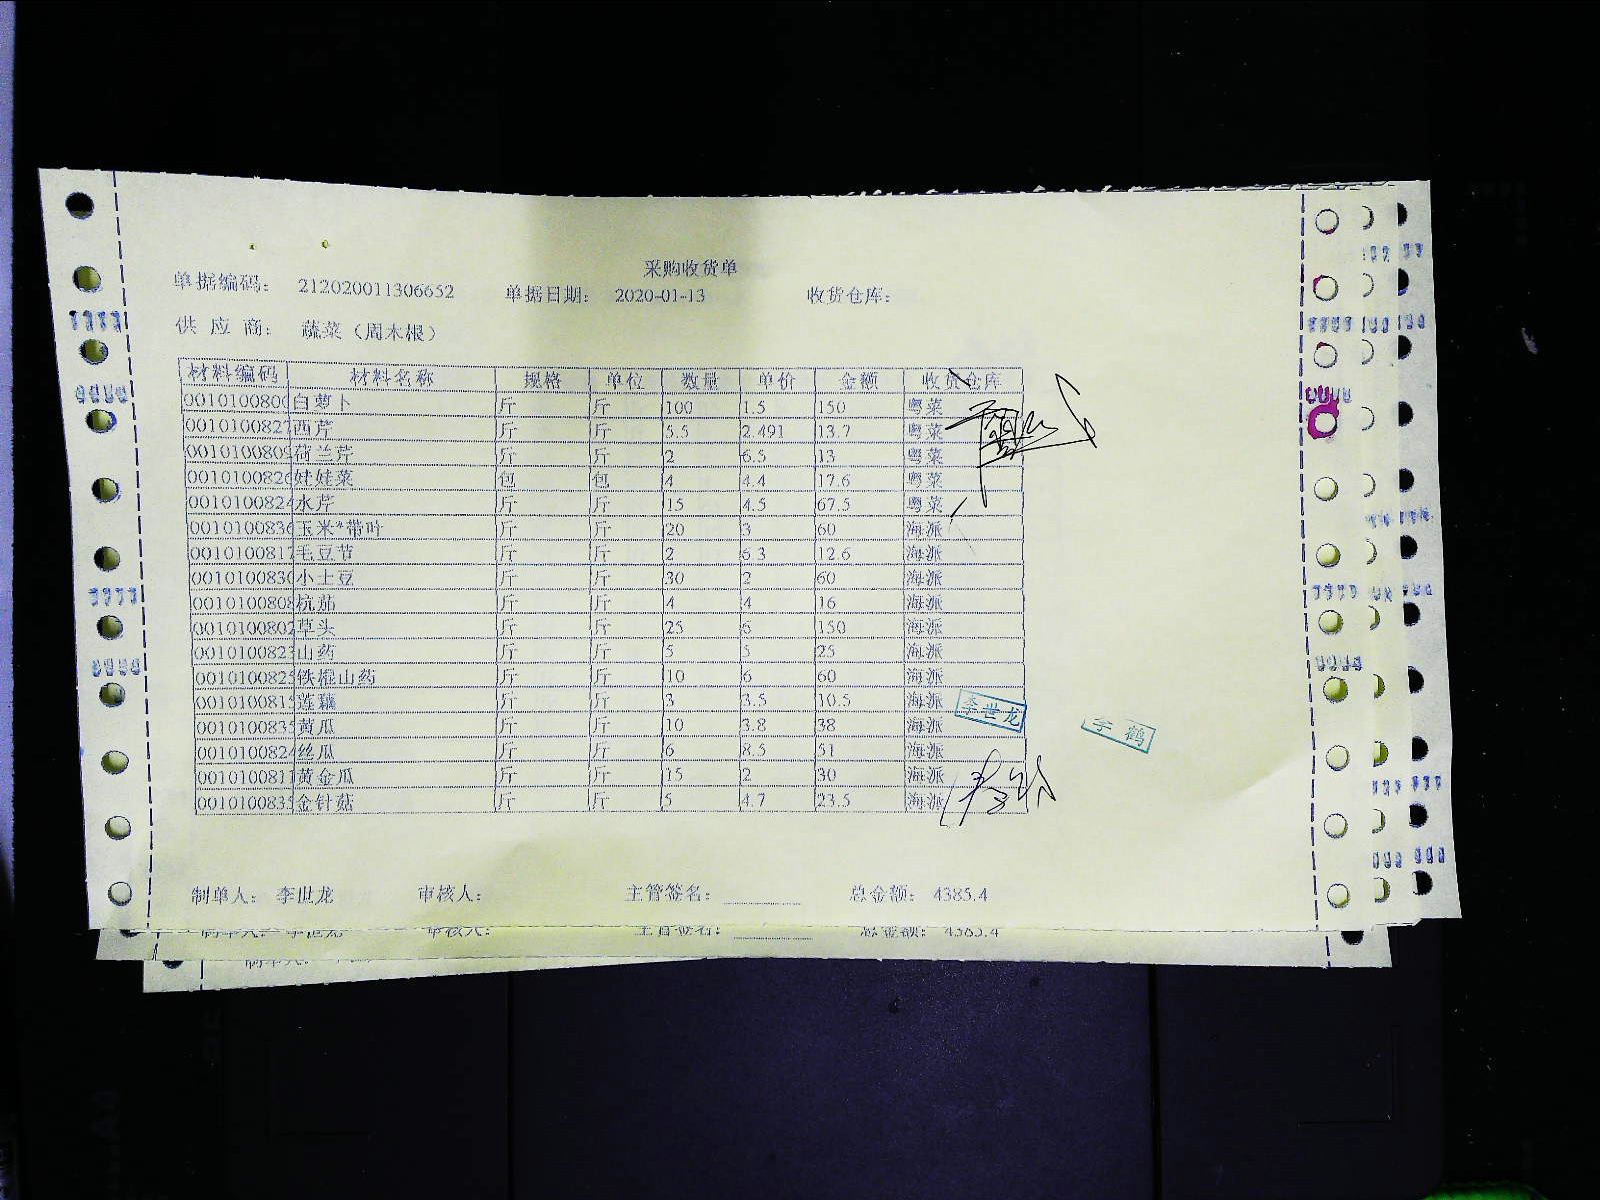 采购收货单
单据编码： 212020011306652 单据日期： 2020-01-13 收货仓库：
供 应 商： 蔬菜（周木根）
材料编码 材料名称 规格 单位 数量 单价 金额 收货仓库
0010100800 白萝卜 斤 斤 100 1.5 150 粤菜
0010100827 西芹 斤 斤 5.5 2.491 13.7 粤菜
0010100809 荷兰芹 斤 斤 2 6.5 13 粤菜
0010100826 娃娃菜 包 包 4 4.4 17.6 粤菜
0010100824 水芹 斤 斤 15 4.5 67.5 粤菜
0010100836 玉米*带叶 斤 斤 20 3 60 海派
0010100817 毛豆节 斤 斤 2 6.3 12.6 海派
0010100830 小土豆 斤 斤 30 2 60 海派
0010100808 杭茄 斤 斤 4 4 16 海派
0010100802 草头 斤 斤 25 6 150 海派
0010100823 山药 斤 斤 5 5 25 海派
0010100825 铁棍山药 斤 斤 10 6 60 海派
0010100815 莲藕 斤 斤 3 3.5 10.5 海派
李世龙
李鹤
0010100835 黄瓜 斤 斤 10 3.8 38 海派
0010100824 丝瓜 斤 斤 6 8.5 51 海派
0010100811 黄金瓜 斤 斤 15 2 30 海派
0010100835 金针菇 斤 斤 5 4.7 23.5 海派
制单人： 李世龙 审核人： 主管签名： 总金额： 4385.4
制单人： 李世龙 审核人： 主管签名： 总金额： 4385.4
制单人：